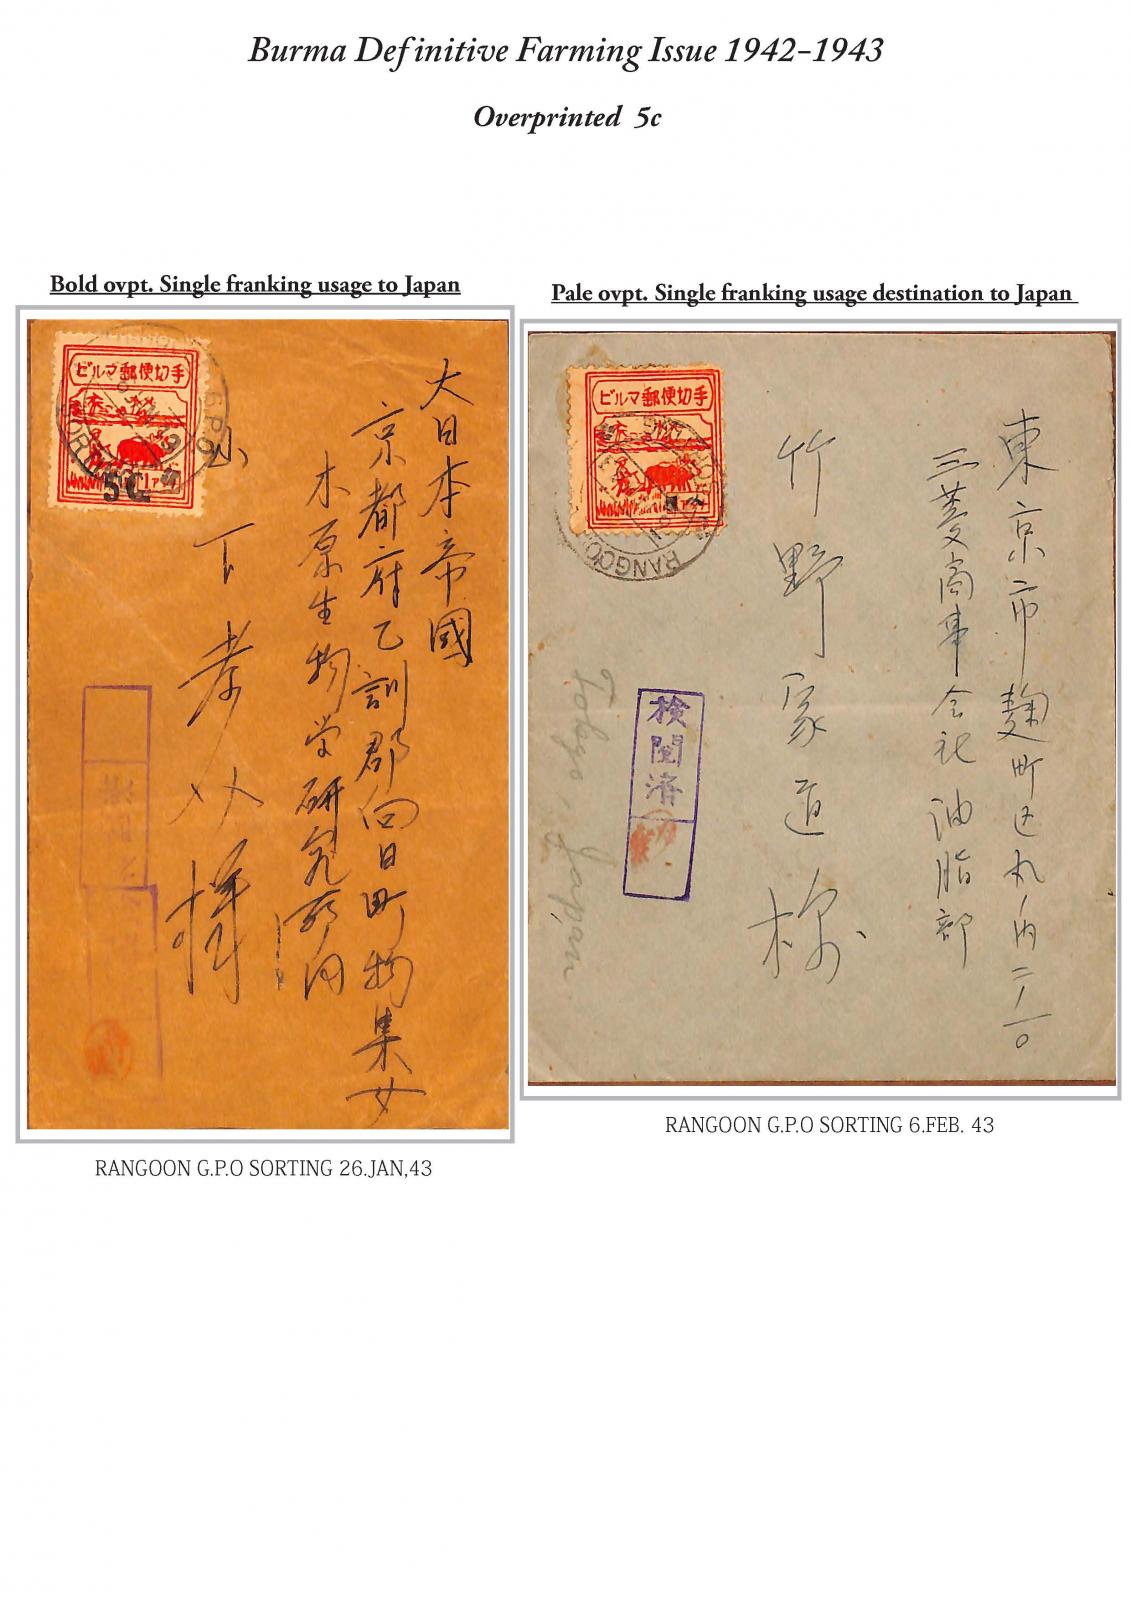 Burma Definitive Farming Issue 1942-1943
Overprinted 5c
Bold ovpt. Single franking usage to Japan
ビルマ郵便切手
5C.
大日本帝國
京都府乙訓郡向日町物集女
木原生物学研究所内
山下孝 様
RANGOON G.P.O SORTING 26.JAN,43
Pale ovpt. Single franking usage destination to Japan
ビルマ郵便切手
RANGOO
東京市麹町区丸ノ内二ノ一〇
三菱商事会社油脂部
竹野 道 様
検閲済
Tokyo, Japan
RANGOON G.P.O SORTING 6.FEB. 43